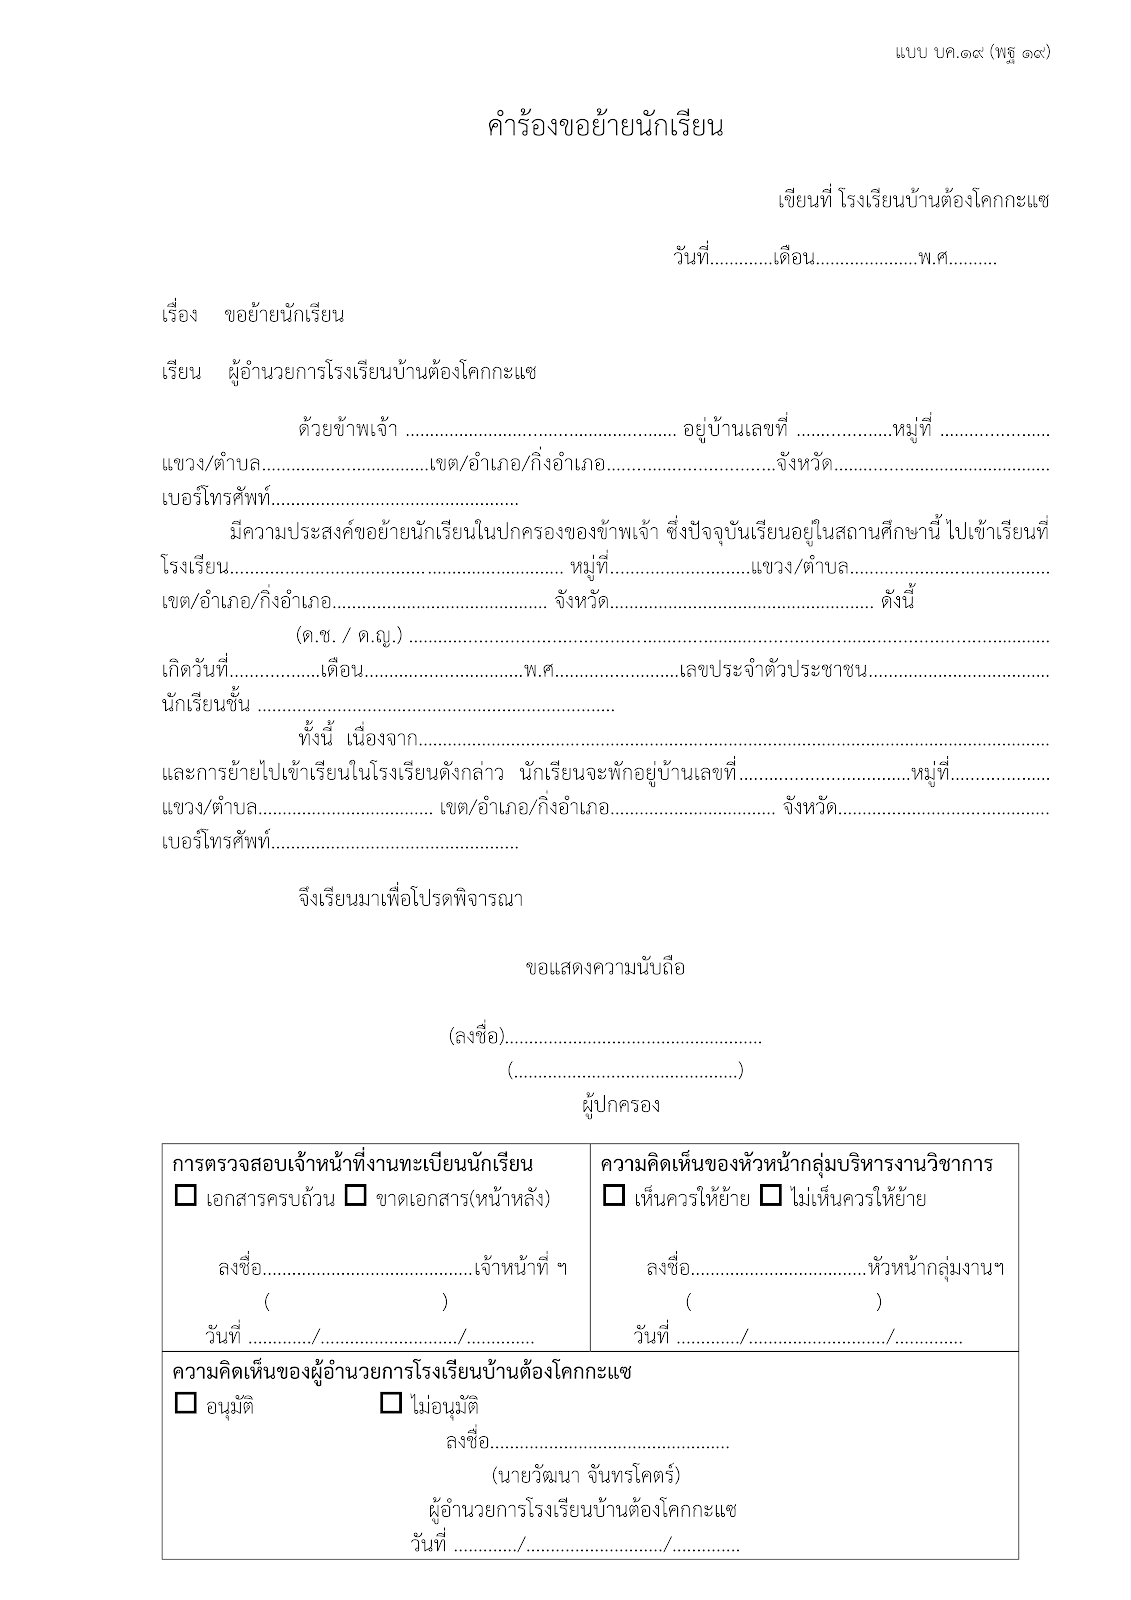 แบบ บค.๑๙ (พฐ ๑๙)
คำร้องขอย้ายนักเรียน
เขียนที่ โรงเรียนบ้านต้องโคกกะแซ
วันที่.............เดือน.....................พ.ศ..........
เรื่อง ขอย้ายนักเรียน
เรียน ผู้อำนวยการโรงเรียนบ้านต้องโคกกะแซ
ด้วยข้าพเจ้า ....................................................... อยู่บ้านเลขที่ ....................หมู่ที่ .......................
แขวง/ตำบล..................................เขต/อำเภอ/กิ่งอำเภอ...................................จังหวัด............................................
เบอร์โทรศัพท์...................................................
มีความประสงค์ขอย้ายนักเรียนในปกครองของข้าพเจ้า ซึ่งปัจจุบันเรียนอยู่ในสถานศึกษานี้ ไปเข้าเรียนที่
โรงเรียน..................................................................... หมู่ที่.............................แขวง/ตำบล.........................................
เขต/อำเภอ/กิ่งอำเภอ............................................ จังหวัด...................................................... ดังนี้
(ด.ช. / ด.ญ.) ....................................................................................................................................
เกิดวันที่...................เดือน.................................พ.ศ..........................เลขประจำตัวประชาชน.....................................
นักเรียนชั้น .........................................................................
ทั้งนี้ เนื่องจาก.................................................................................................................................
และการย้ายไปเข้าเรียนในโรงเรียนดังกล่าว นักเรียนจะพักอยู่บ้านเลขที่...................................หมู่ที่.....................
แขวง/ตำบล.................................... เขต/อำเภอ/กิ่งอำเภอ.................................. จังหวัด...........................................
เบอร์โทรศัพท์...................................................
จึงเรียนมาเพื่อโปรดพิจารณา
ขอแสดงความนับถือ
(ลงชื่อ).....................................................
(..............................................)
ผู้ปกครอง
การตรวจสอบเจ้าหน้าที่งานทะเบียนนักเรียน
☐ เอกสารครบถ้วน ☐ ขาดเอกสาร(หน้าหลัง)
ลงชื่อ...........................................เจ้าหน้าที่ ฯ
( )
วันที่ ............./............................/..............
ความคิดเห็นของหัวหน้ากลุ่มบริหารงานวิชาการ
☐ เห็นควรให้ย้าย ☐ ไม่เห็นควรให้ย้าย
ลงชื่อ....................................หัวหน้ากลุ่มงานฯ
( )
วันที่ ............./............................/..............
ความคิดเห็นของผู้อำนวยการโรงเรียนบ้านต้องโคกกะแซ
☐ อนุมัติ ☐ ไม่อนุมัติ
ลงชื่อ.................................................
(นายวัฒนา จันทรโคตร์)
ผู้อำนวยการโรงเรียนบ้านต้องโคกกะแซ
วันที่ ............./............................/..............